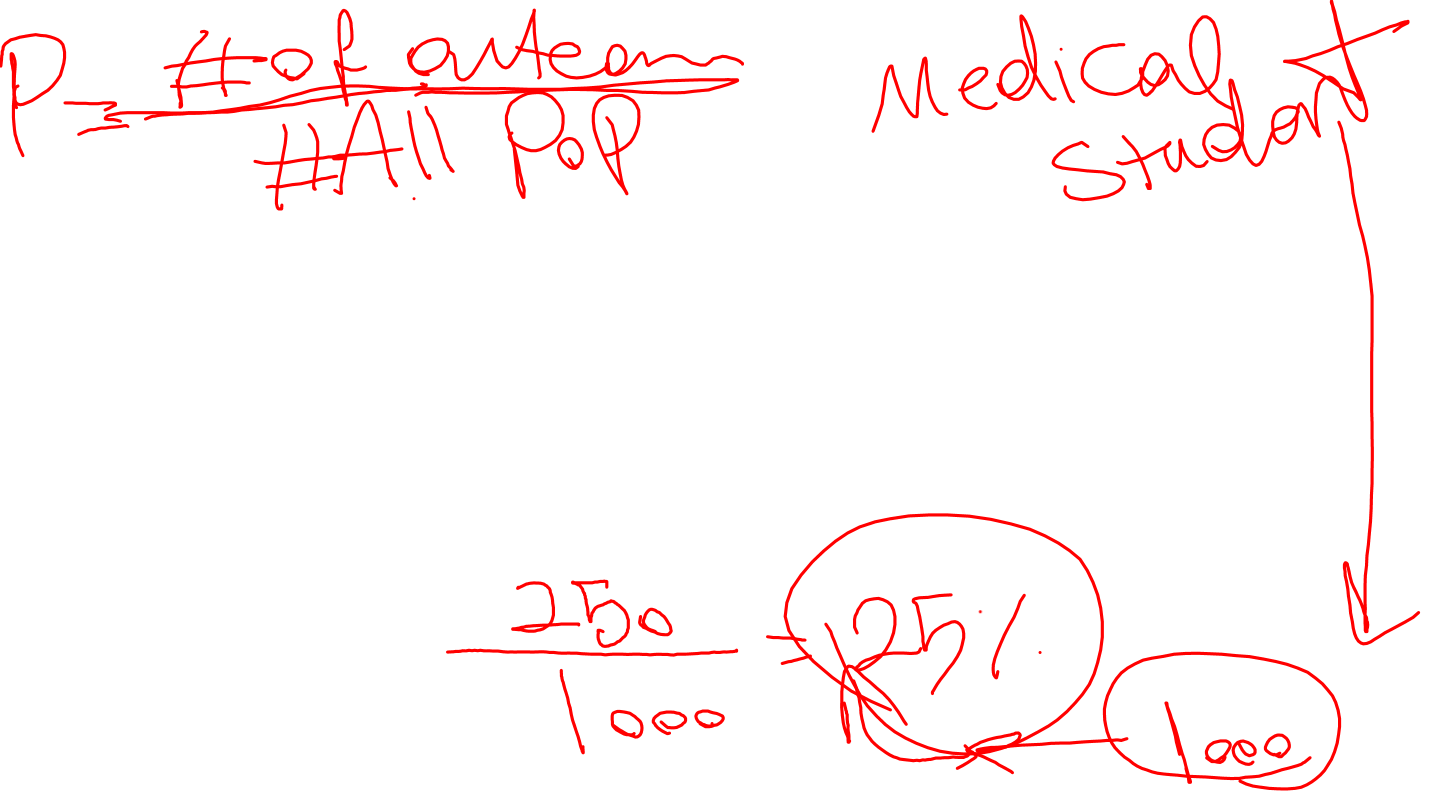 P = # of outcom
# All PoP
Medical
student
250
1000
= 25%
1000